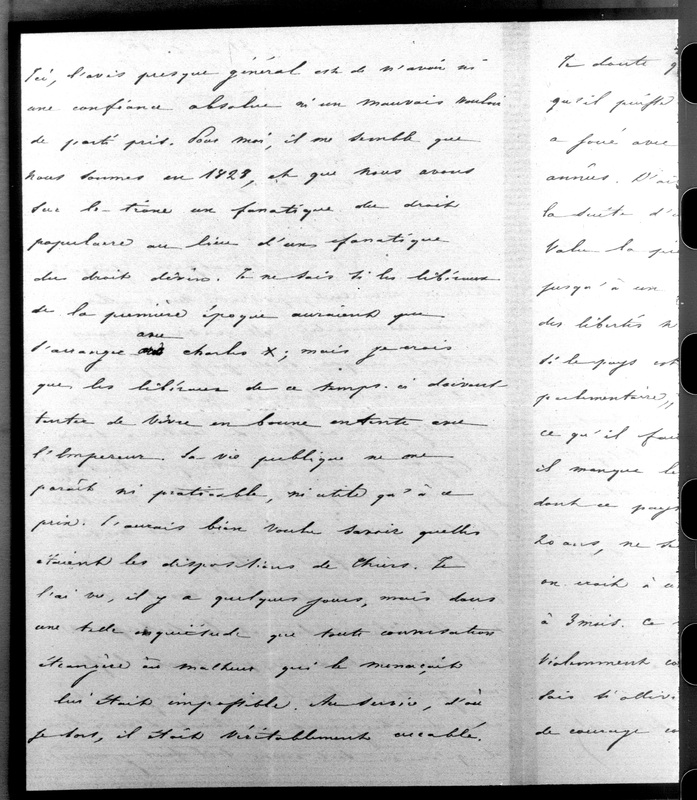 Ici, l'avis presque général est de n'avoir ni
une confiance absolue ni un mauvais vouloir
de parti pris. Pour moi, il me semble que
nous sommes en 1828, et que nous avons
sur le trône un fanatique du droit
populaire au lieu d'un fanatique
du droit divin. Je ne sais si les libéraux
de la première époque auraient que
s'arranger avec Charles X; mais je crois
que les libéraux de ce temps-ci doivent
tenter de vivre en bonne entente avec
l'Empereur. La vie publique ne me
paraît ni praticable, ni utile qu'à ce
prix. J'aurais bien voulu savoir quelles
étaient les dispositions de Thiers. Je
l'ai vu, il y a quelques jours, mais dans
une telle inquiétude que toute conversation
étrangère au malheur qui le menaçait
lui était impossible. Au service, d'où
je sors, il était véritablement accablé.
Je doute
qu'il
a joué avec
années. D'ai
la suite d'
valu la
jusqu'à un
des libertés
si le pays est
parlementaire,
ce qu'il
il manque
dont ce pays
20 ans, ne
on croit à
à 3 mois. Ce
violemment
de courage